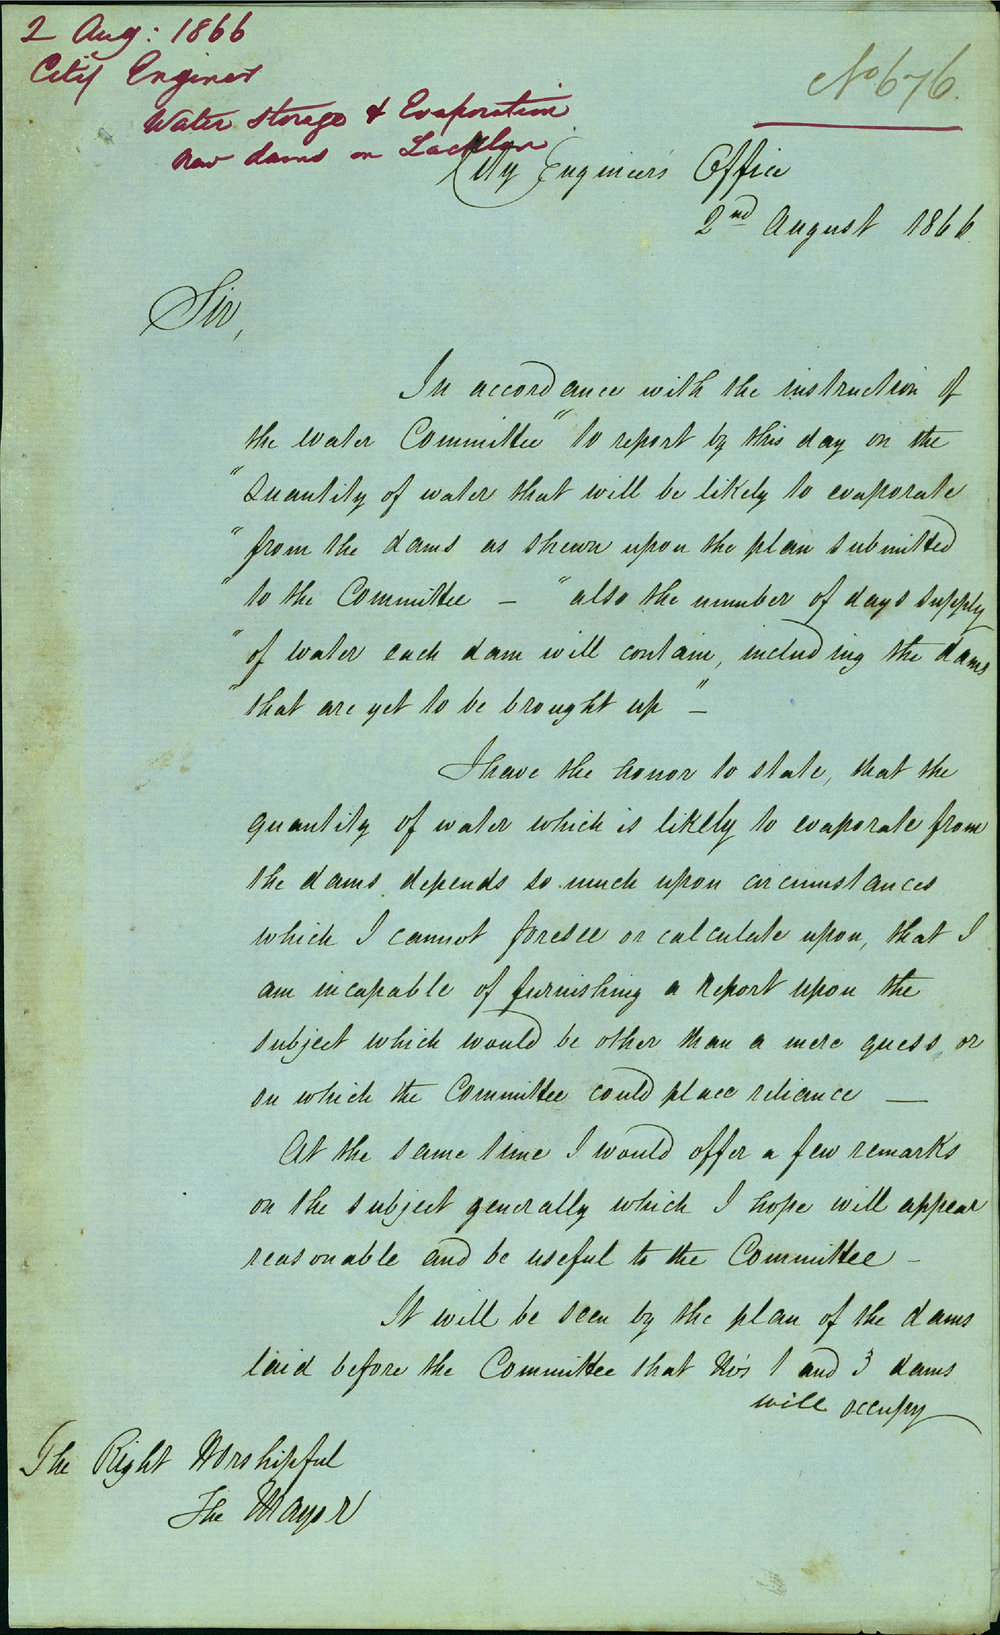 2 Aug: 1866
City Enginer
Water Storage & Evaporation
new dams on Lachlan
No 676.
City Engineer's Office
2nd August 1866.
Sir,
In accordance with the instruction of
the water Committee "to report by this day on the
"Quantity of water that will be likely to evaporate
"from the dams as shewn upon the plan submitted
"to the Committee — "also the number of days supply
"of water each dam will contain, including the dams
"that are yet to be brought up" —
I have the honor to state, that the
quantity of water which is likely to evaporate from
the dams depends so much upon circumstances
which I cannot foresee or calculate upon, that I
am incapable of furnishing a report upon the
subject which would be other than a mere guess, or
on which the Committee could place reliance —
At the same time I would offer a few remarks
on the subject generally which I hope will appear
reasonable and be useful to the Committee —
It will be seen by the plan of the dams
laid before the Committee that No's 1 and 3 dams
will occupy
The Right Worshipful
The Mayor